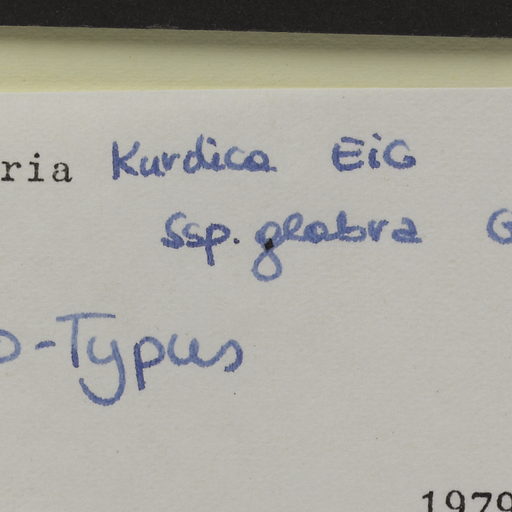 ria Kurdica EiG
Ssp. glabra G
o-Typus
1979